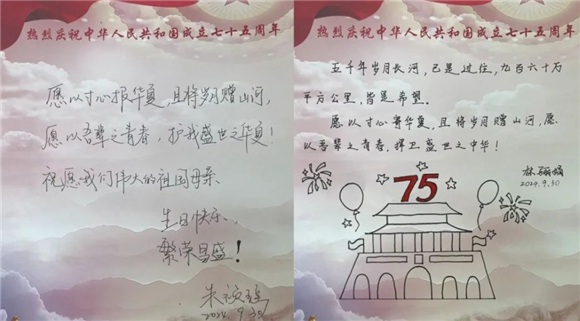 热烈庆祝中华人民共和国成立七十五周年
愿以寸心报华夏,且将岁月赠山河,
愿以吾辈之青春,护我盛世之华夏!
祝愿我们伟大的祖国母亲
生日快乐、
繁荣昌盛!
2024.9.30
热烈庆祝中华人民共和国成立七十五周年
五千年岁月长河,已是过往,九百六十万
平方公里,皆是希望。
愿以寸心寄华夏,且将岁月赠山河,愿
以吾辈之青春,捍卫盛世之中华!
2024.9.30
75